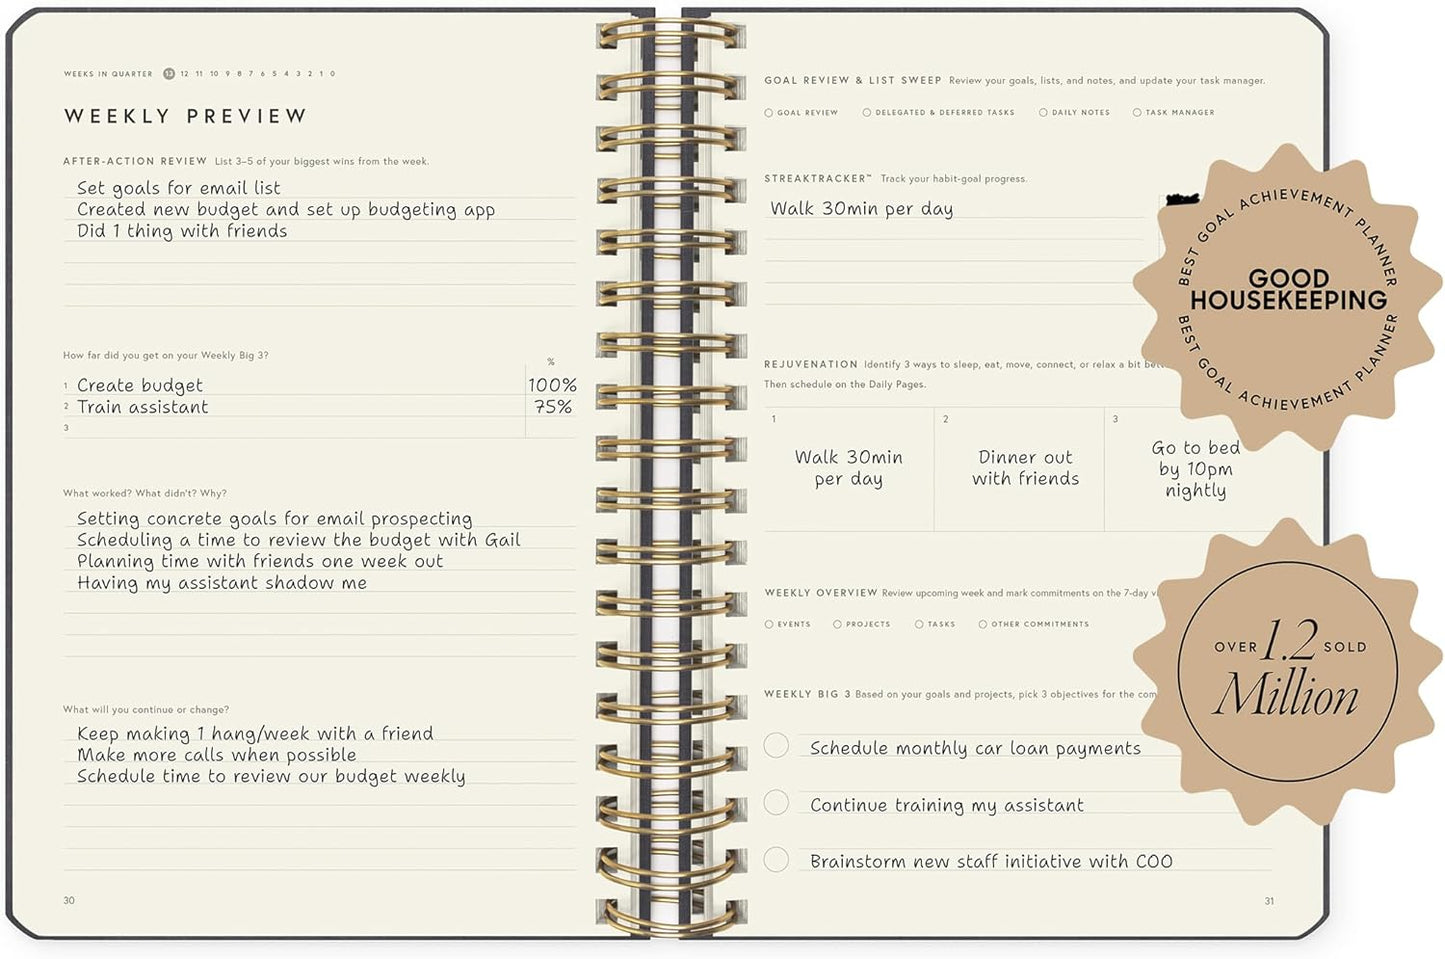 WEEKS IN QUARTER 13 12 11 10 9 8 7 6 5 4 3 2 1 0
WEEKLY PREVIEW
AFTER-ACTION REVIEW List 3–5 of your biggest wins from the week.
Set goals for email list
Created new budget and set up budgeting app
Did 1 thing with friends
How far did you get on your Weekly Big 3?
%
1 Create budget 100%
2 Train assistant 75%
3
What worked? What didn't? Why?
Setting concrete goals for email prospecting
Scheduling a time to review the budget with Gail
Planning time with friends one week out
Having my assistant shadow me
What will you continue or change?
Keep making 1 hang/week with a friend
Make more calls when possible
Schedule time to review our budget weekly
30
GOAL REVIEW & LIST SWEEP Review your goals, lists, and notes, and update your task manager.
GOAL REVIEW DELEGATED & DEFERRED TASKS DAILY NOTES TASK MANAGER
STREAKTRACKER™ Track your habit-goal progress.
Walk 30min per day
REJUVENATION Identify 3 ways to sleep, eat, move, connect, or relax a bit
Then schedule on the Daily Pages.
1 2 3
Walk 30min
per day
Dinner out
with friends
Go to bed
by 10pm
nightly
WEEKLY OVERVIEW Review upcoming week and mark commitments on the 7-day
EVENTS PROJECTS TASKS OTHER COMMITMENTS
WEEKLY BIG 3 Based on your goals and projects, pick 3 objectives for the
Schedule monthly car loan payments
Continue training my assistant
Brainstorm new staff initiative with COO
31
BEST GOAL ACHIEVEMENT PLANNER
GOOD
HOUSEKEEPING
BEST GOAL ACHIEVEMENT PLANNER
OVER 1.2 SOLD
Million